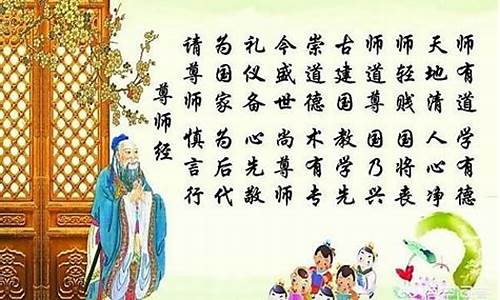 尊师经
师有道 学有德
天地清 人心净
师轻贱 国将丧
师道尊 国乃兴
古建国 教学先
崇道德 术有专
今盛世 尚尊师
礼仪备 心先敬
为国家 为后代
请尊师 慎言行